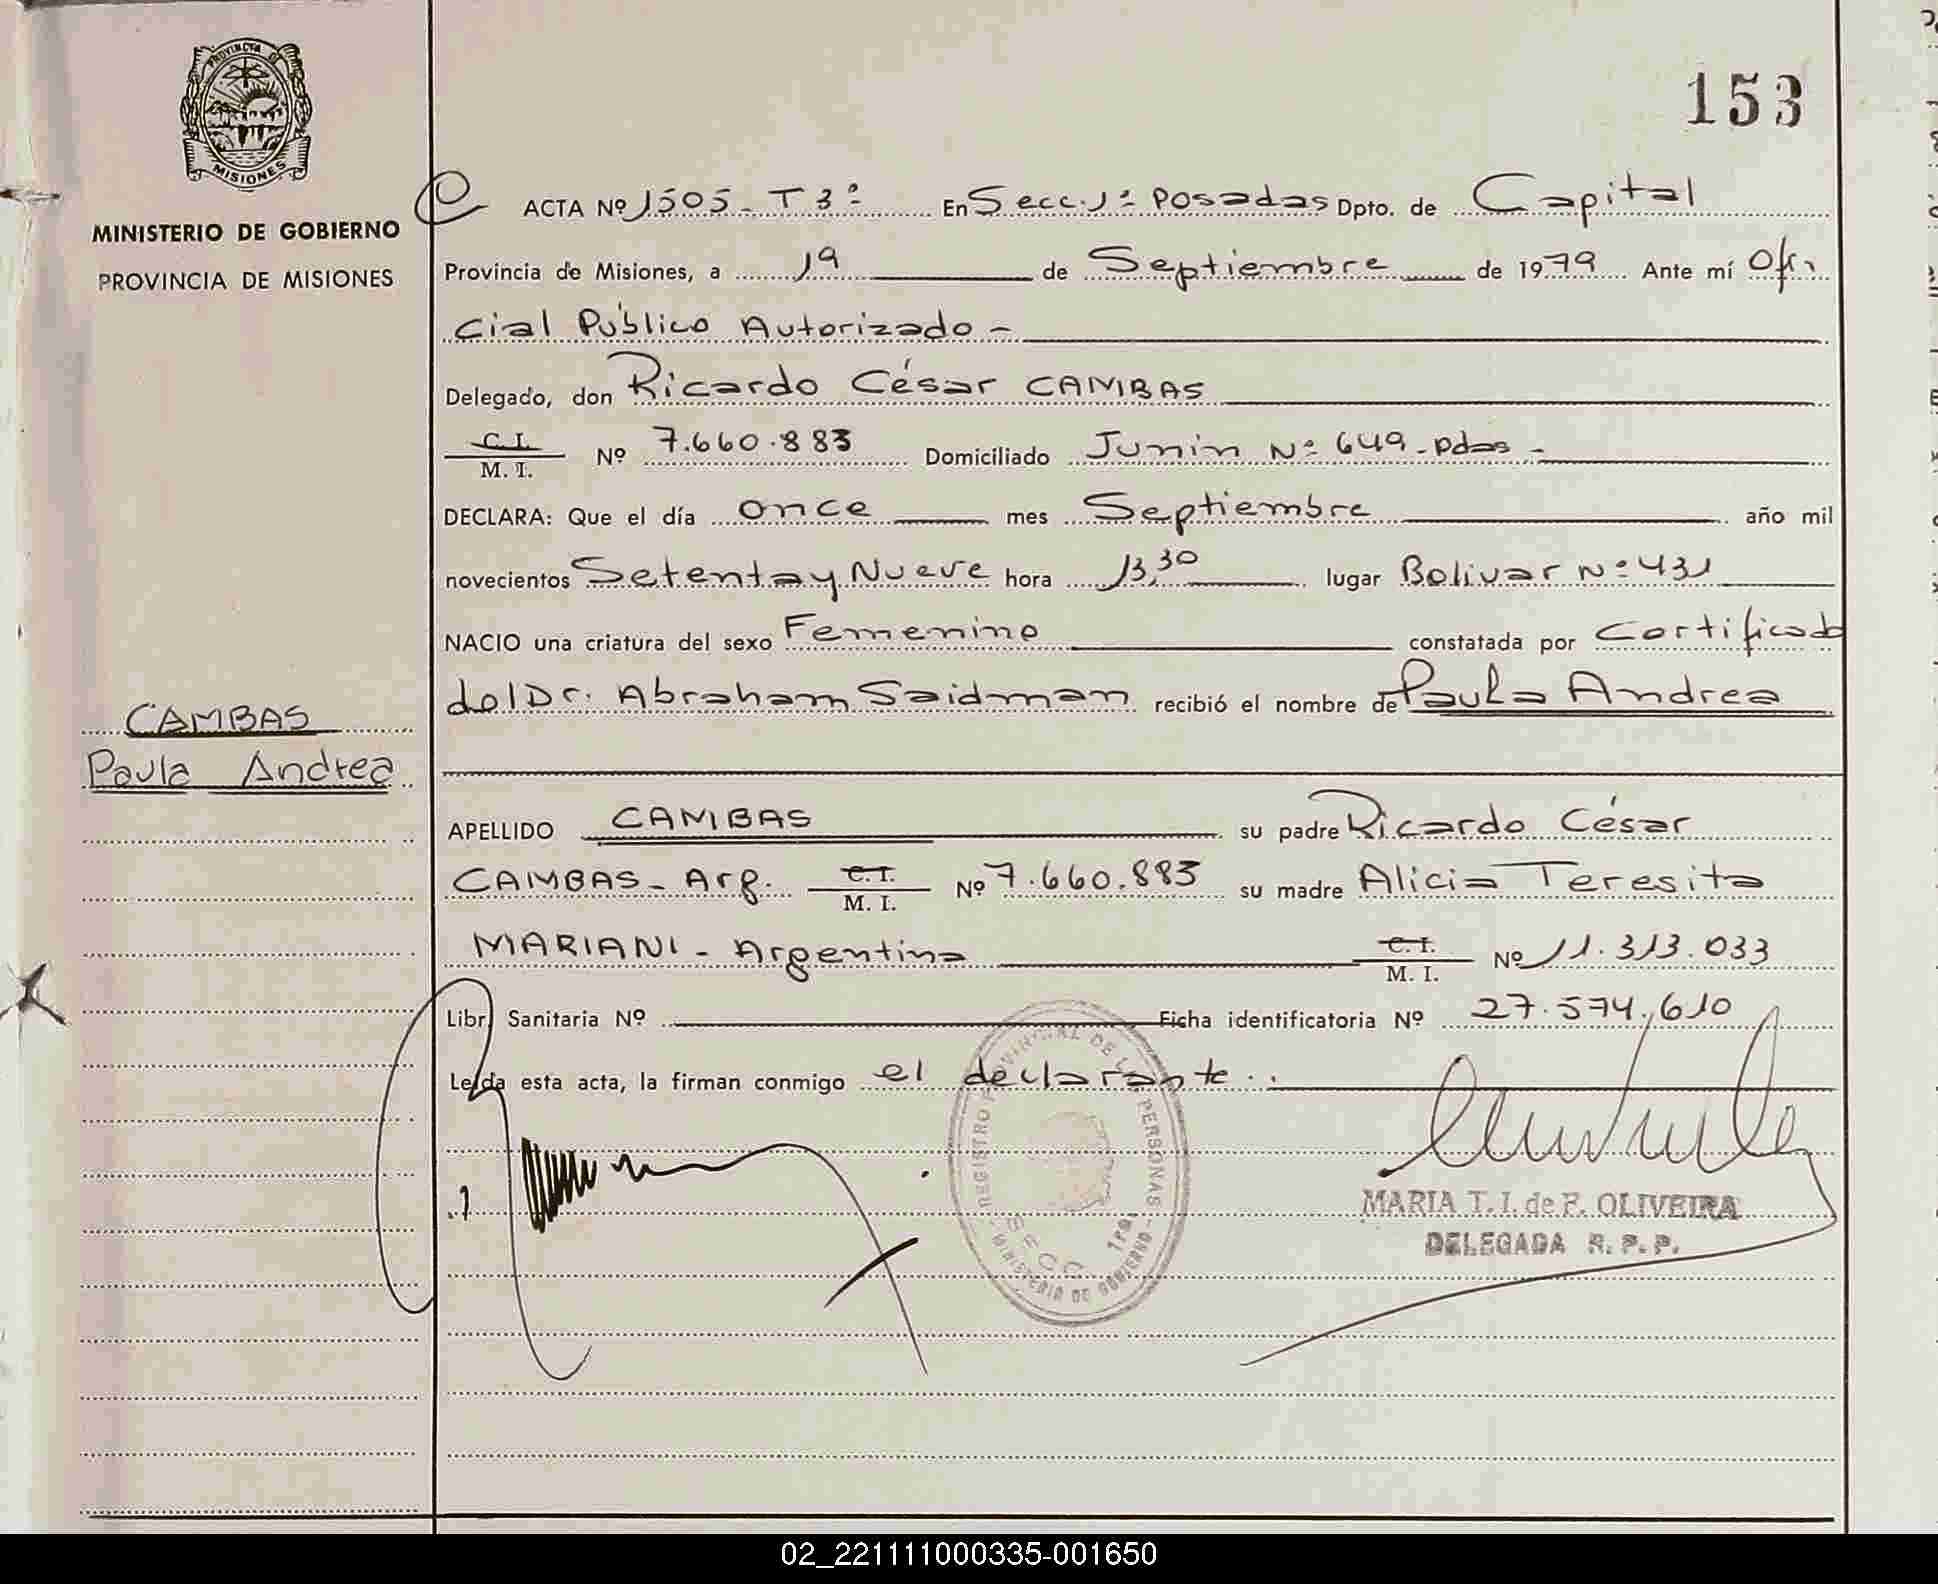 PROVINCIA DE
MISIONES
MINISTERIO DE GOBIERNO
PROVINCIA DE MISIONES
CAMBAS
Paula Andrea
153
ACTA Nº 1505 - T 3º En Secc. 1ª Posadas Dpto. de Capital
Provincia de Misiones, a 19 de Septiembre de 1979 Ante mí Ofi
cial Público Autorizado -
Delegado, don Ricardo César CAMBAS
C. I.
M. I. Nº 7.660.883 Domiciliado Junin Nº 649 - Pdas -
DECLARA: Que el día once mes Septiembre año mil
novecientos Setenta y Nueve hora 13,30 lugar Bolivar Nº 431
NACIO una criatura del sexo Femenino constatada por Certificado
del Dr. Abraham Saidman recibió el nombre de Paula Andrea
APELLIDO CAMBAS su padre Ricardo César
CAMBAS - Arg. C. I. M. I. Nº 7.660.883 su madre Alicia Teresita
MARIANI - Argentina C. I. M. I. Nº 11.313.033
Libr. Sanitaria Nº Ficha identificatoria Nº 27.574.610
Leída esta acta, la firman conmigo el declarante..
REGISTRO PROVINCIAL DE LAS PERSONAS
SECC. 1ra.
MINISTERIO DE GOBIERNO
MARIA T. I. de F. OLIVEIRA
DELEGADA R. P. P.
02_221111000335-001650